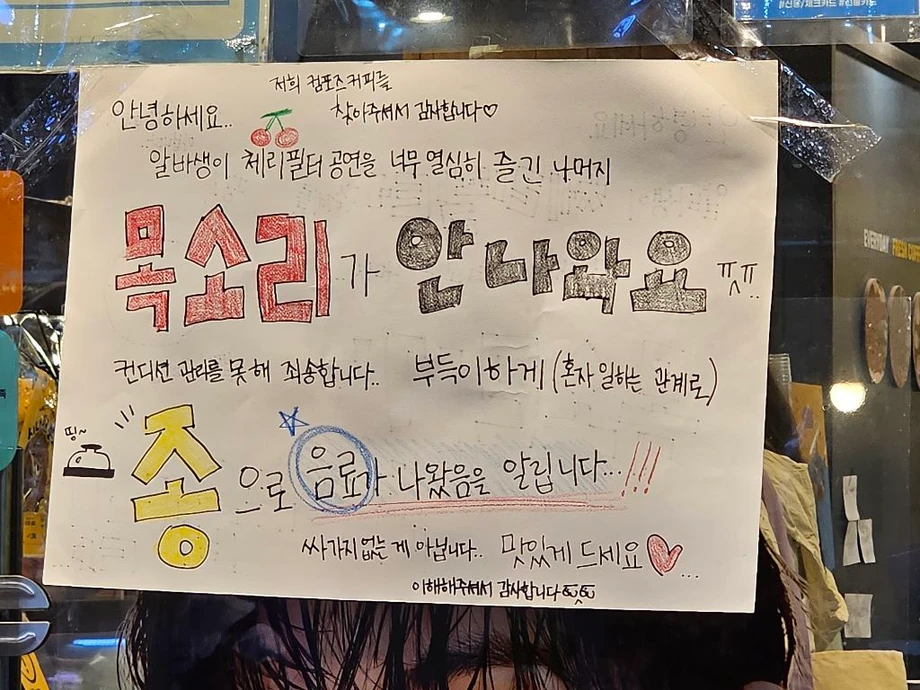 #신용/체크카드 #선불카드
저희 컴포즈커피를
찾아주셔서 감사합니다♡
안녕하세요..
알바생이 체리필터 공연을 너무 열심히 즐긴 나머지
목소리가 안 나와요 ㅠㅠ..
EVERYDAY FRESH
컨디션 관리를 못해 죄송합니다.. 부득이하게 (혼자 일하는 관계로)
띵~
종으로 음료가 나왔음을 알립니다...!!!
싸가지없는 게 아닙니다.. 맛있게 드세요♡...
이해해주셔서 감사합니다